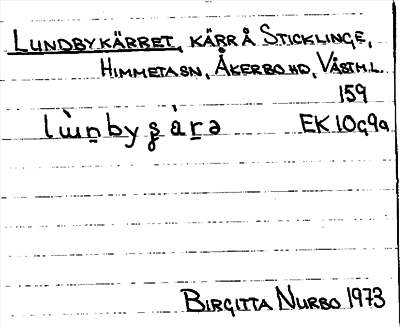 LUNDBYKÄRRET, KÄRR Å STICKLINGE,
HIMMETA SN, ÅKERBO HD, VÄSTM.L.
159
lɯ̀n̠by ʂáṟə EK 10G9a
BIRGITTA NURBO 1973